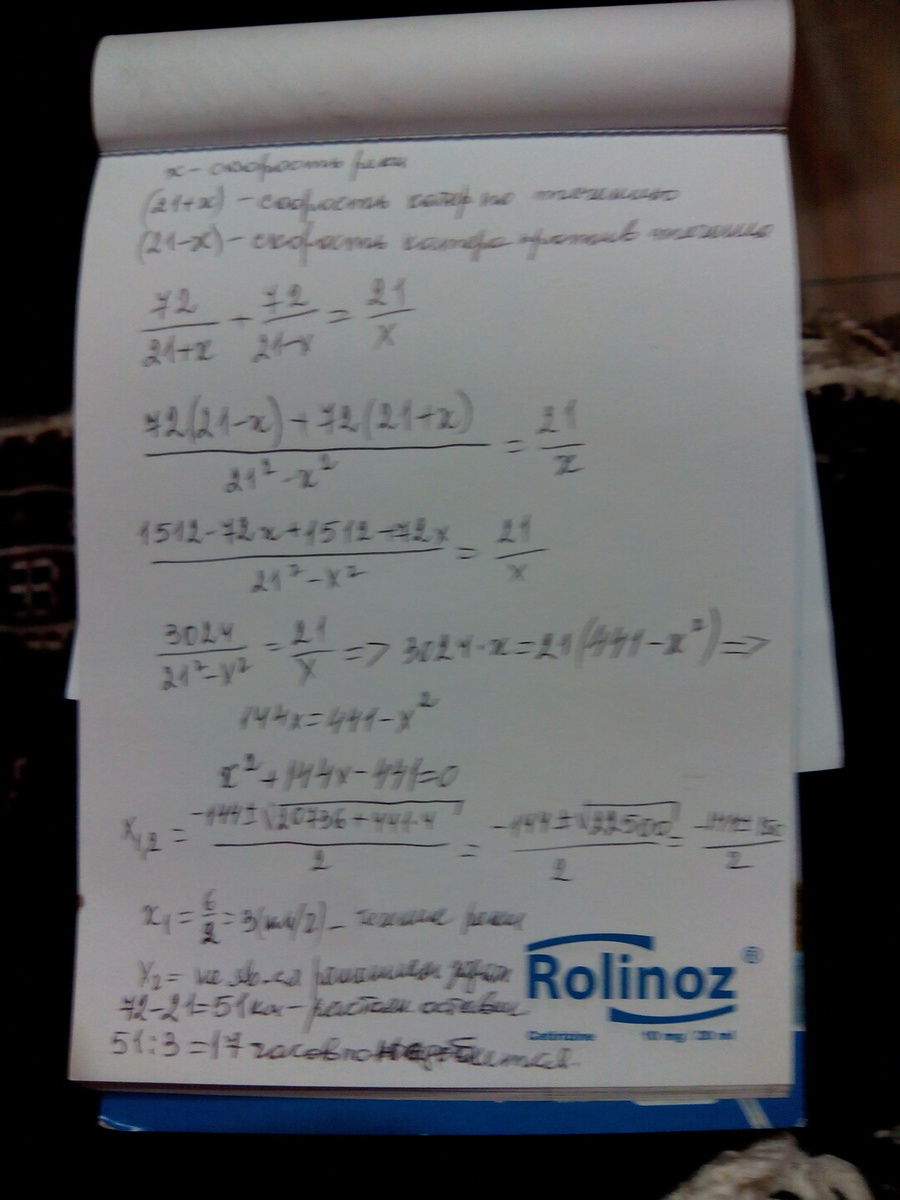 x - скорость реки
(21+x) - скорость катер по течению
(21-x) - скорость катера против течению
72/(21+x) + 72/(21-x) = 21/x
(72(21-x) + 72(21+x))/(21²-x²) = 21/x
(1512-72x+1512+72x)/(21²-x²) = 21/x
3024/(21²-x²) = 21/x => 3024·x=21(441-x²) =>
144x=441-x²
x²+144x-441=0
x₁,₂ = (-144±√(20736+441·4))/2 = (-144±√22500)/2 = (-144±150)/2
x₁ = 6/2 = 3(км/г) - течение реки
x₂ = не яв-ся решением
72-21=51км -
51:3=17 часов
Rolinoz®
Cetirizine 10 mg / 20 ml